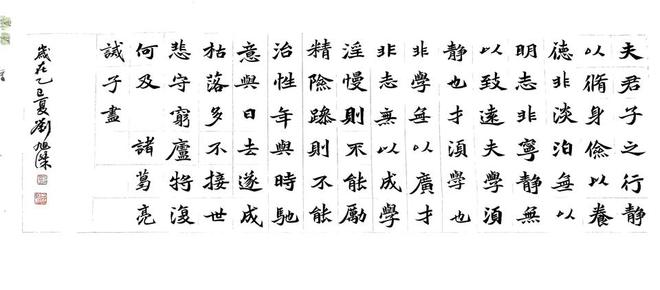 夫君子之行靜
以脩身儉以養
德非淡泊無以
明志非寧靜無
以致遠夫學須
靜也才須學也
非學無以廣才
非志無以成學
淫慢則不能勵
精險躁則不能
治性年與時馳
意與日去遂成
枯落多不接世
悲守窮廬將復
何及 諸葛亮
誡子書
歲在乙巳夏劉旭傑